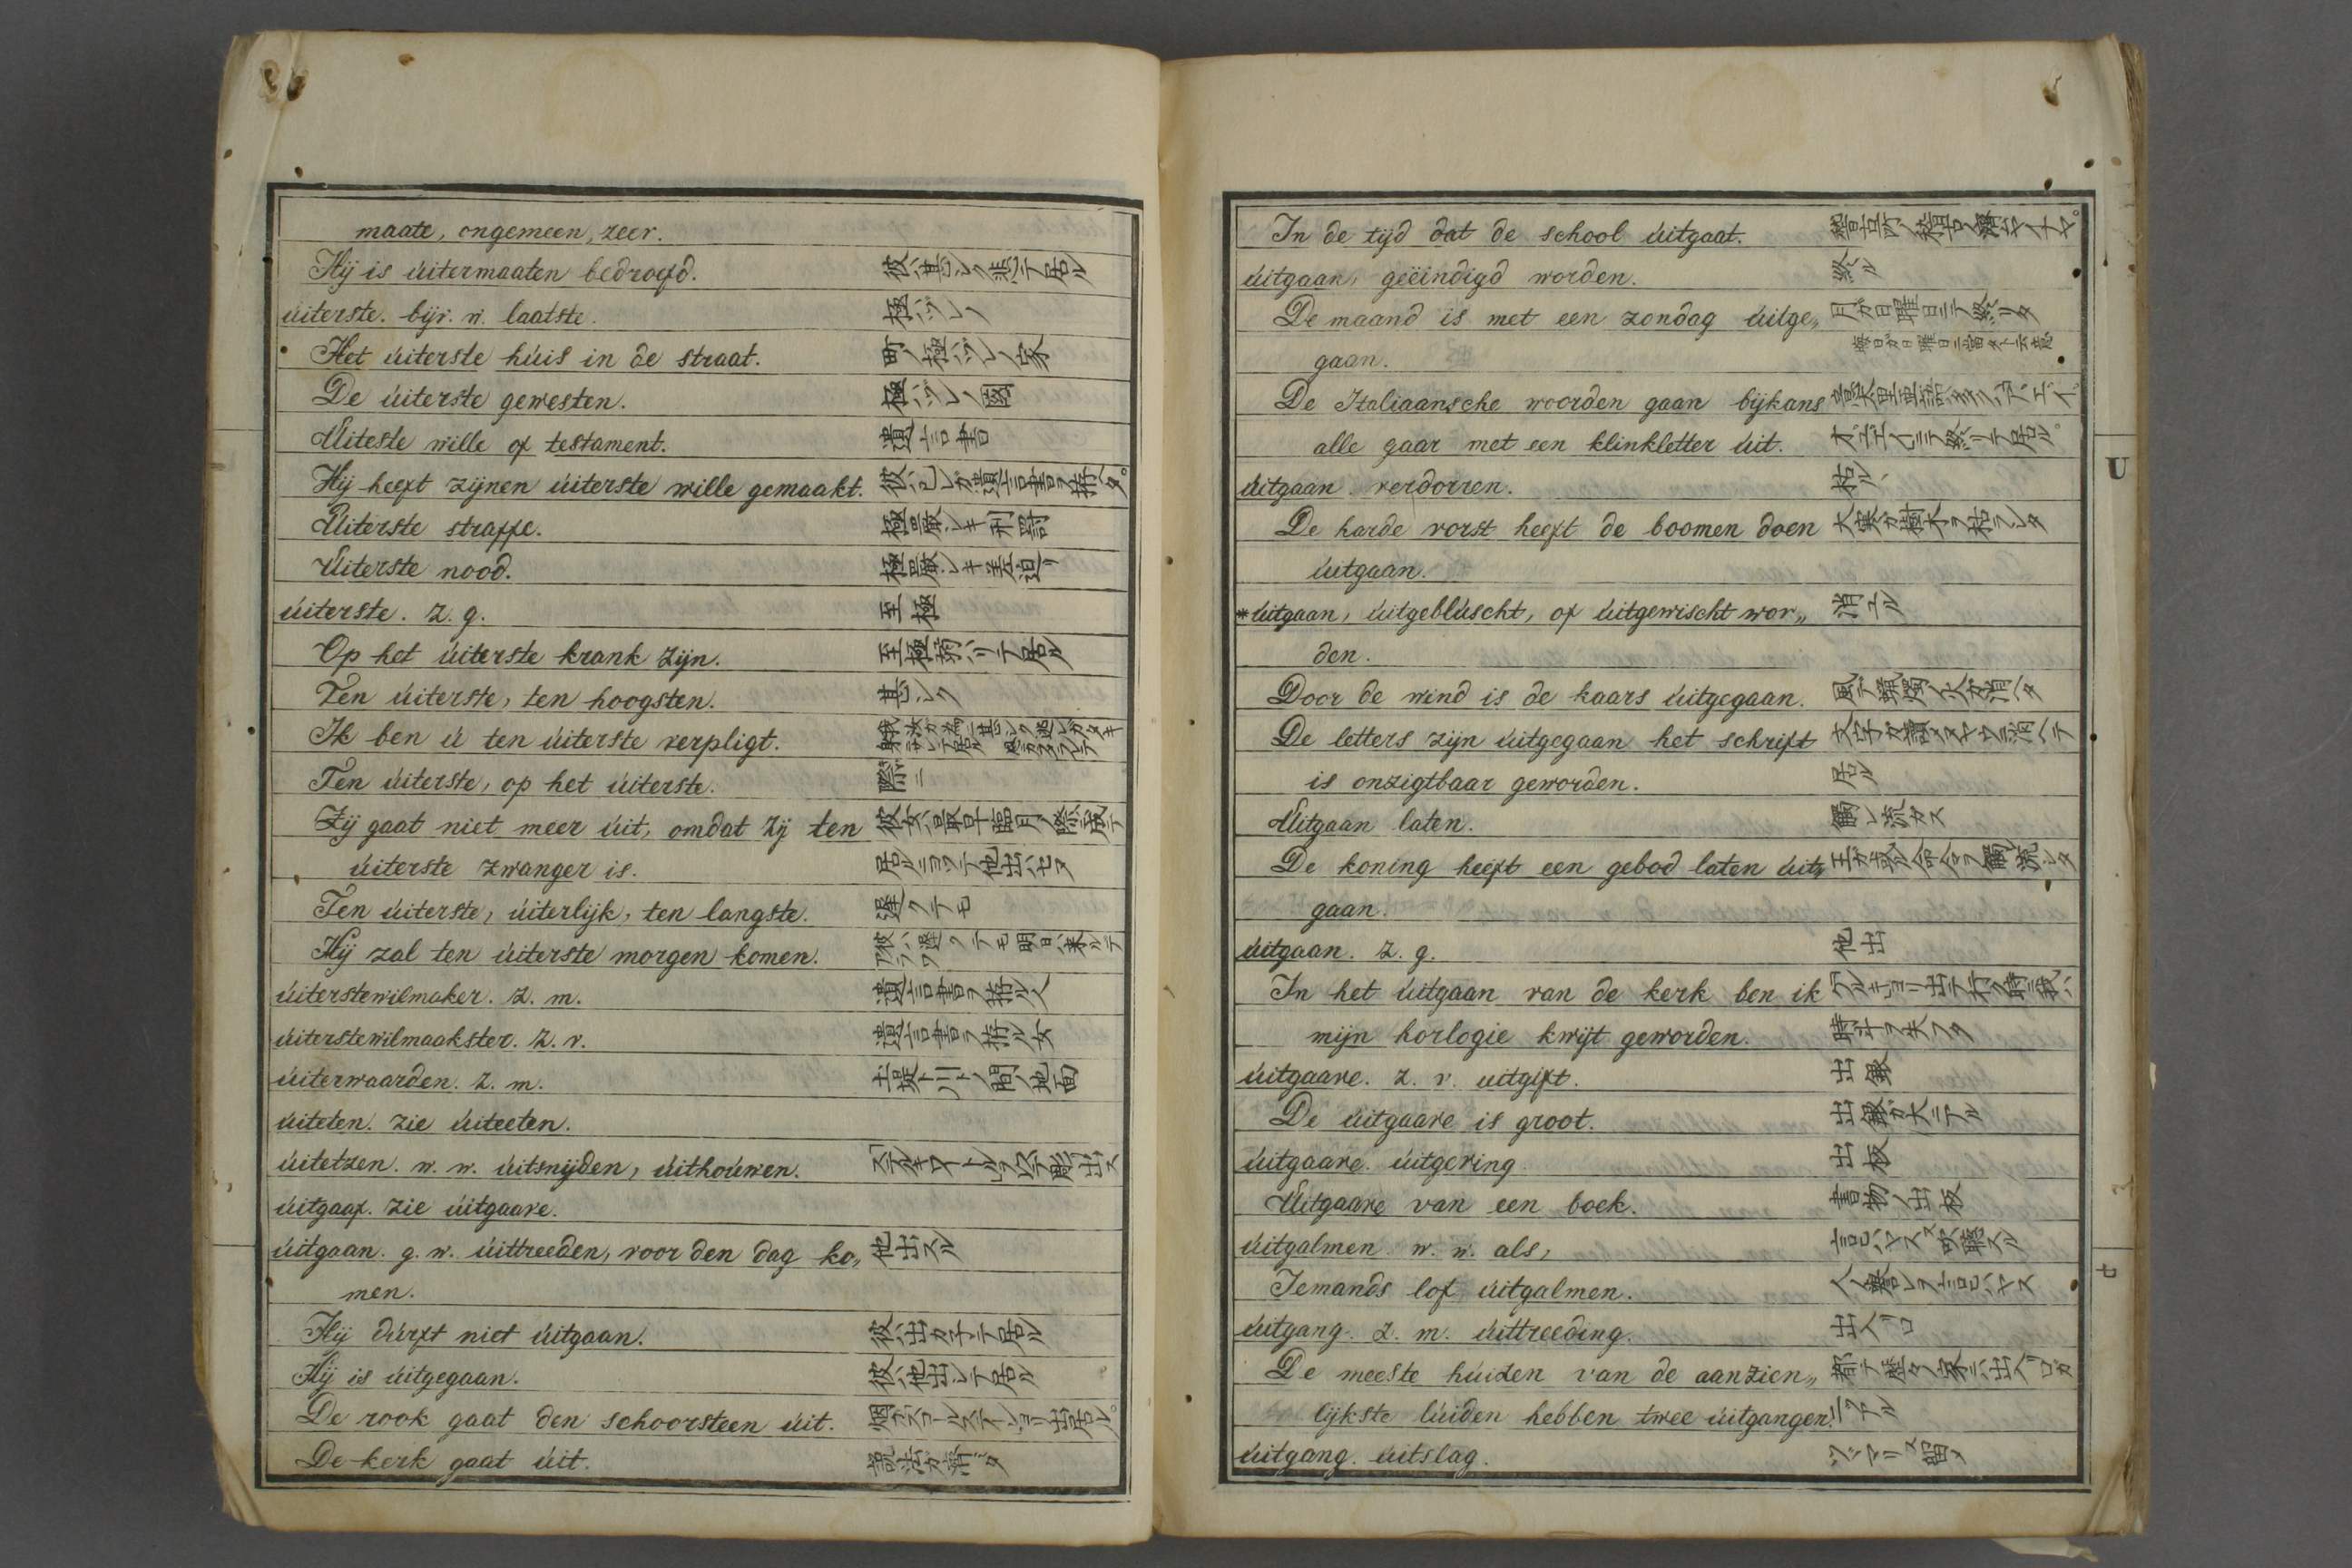 maate, ongemeen, zeer.
Hij is úitermaaten bedroefd. 彼ハ甚シク悲テ居ル
úiterste. bijv. w. laatste. 極ハツレノ
Het úiterste húis in de straat. 町ノ極ハツレノ家
De úiterste gewesten. 極ハツレノ國
Uiteste wille of testament. 遺言書
Hij heeft zijnen úiterste wille gemaakt. 彼ハ己レガ遺言書ヲ拵ヘタ。
Uiterste straffe. 極嚴シキ刑罸
Uiterste nood. 極嚴シキ差迫リ
úiterste. z. g. 至極
Op het úiterste krank zijn. 至極病ハツテ居ル
Ten úiterste, ten hoogsten. 甚シク
Ik ben ú ten úiterste verpligt.
Ten úiterste, op het úiterste. 際ニ
Zij gaat niet meer úit, omdat zij ten 彼女ハ最早臨月ノ際ニ成テ
úiterste zwanger is. 居ルニヨツテ他出ハセヌ
Ten úiterste, úiterlijk, ten langste. 遅クテモ
Hij zal ten úiterste morgen komen. 彼ハ遅クテモ明日ハ来ルデアラフ
úiterstewilmaker. z. m. 遺言書ヲ拵ル人
úiterstewilmaakster. z. v. 遺言書ヲ拵ル女
úiterwaarden. z. m. 土堤ト川トノ間ノ地面
úiteten. zie úiteeten.
úitetzen. w. w. úitsnijden, úithoúwen.
úitgaaf. zie úitgaave.
úitgaan. g. w. úittreeden, voor den dag ko„ 他出スル
men.
Hij dúrft niet úitgaan. 彼ハ出カネテ居ル
Hij is úitgegaan. 彼ハ他出シテ居ル
De rook gaat den schoorsteen úit. 烟ガスコールステインヨリ出テ居ル。
De kerk gaat úit. 説法ガ済ンダ
In de tijd dat de school úitgaat.
úitgaan, geëindigd worden. 終ル
De maand is met een zondag úitge„ 月ガ日曜日ニテ終リタ
gaan. 晦日ガ日曜日ニ當タト云意
De Italiaansche woorden gaan bijkans
alle gaar met een klinkletter úit.
úitgaan. verdorren. 枯ル
De harde vorst heeft de boomen doen 大寒ガ樹木ヲ枯ラシタ
úitgaan.
*úitgaan, úitgeblúscht, of úitgewischt wor„ 消エル
den.
Door de wind is de kaars úitgegaan. 風デ蠟燭ノ火ガ消ヘタ
De letters zijn úitgegaan het schrift 文字ガ讀メヌヤウニ消ヘテ
is onzigtbaar geworden. 居ル
Uitgaan laten. 觸レ流カス
De koning heeft een gebod laten úit„ 王ガ或ル命令ヲ觸流シタ
gaan.
úitgaan. z. g. 他出
In het úitgaan van de kerk ben ik
mijn horlogie kwijt geworden. 時斗ヲ失フタ
úitgaave. z. v. uitgift. 出銀
De úitgaave is groot. 出銀ガ大デアル
úitgaave. úitgeving 出板
Uitgaave van een boek. 書物ノ出板
úitgalmen w. w. als,
Iemands lof úitgalmen. 人ノ譽レヲ言ヒハヤス
úitgang. z. m. úittreeding. 出入リ口
De meeste húizen van de aanzien„ 都テ歴々ノ家ニハ出入リ口ガ
lijkste lúiden hebben twee úitgangen. 二ツアル
úitgang. úitslag.
U